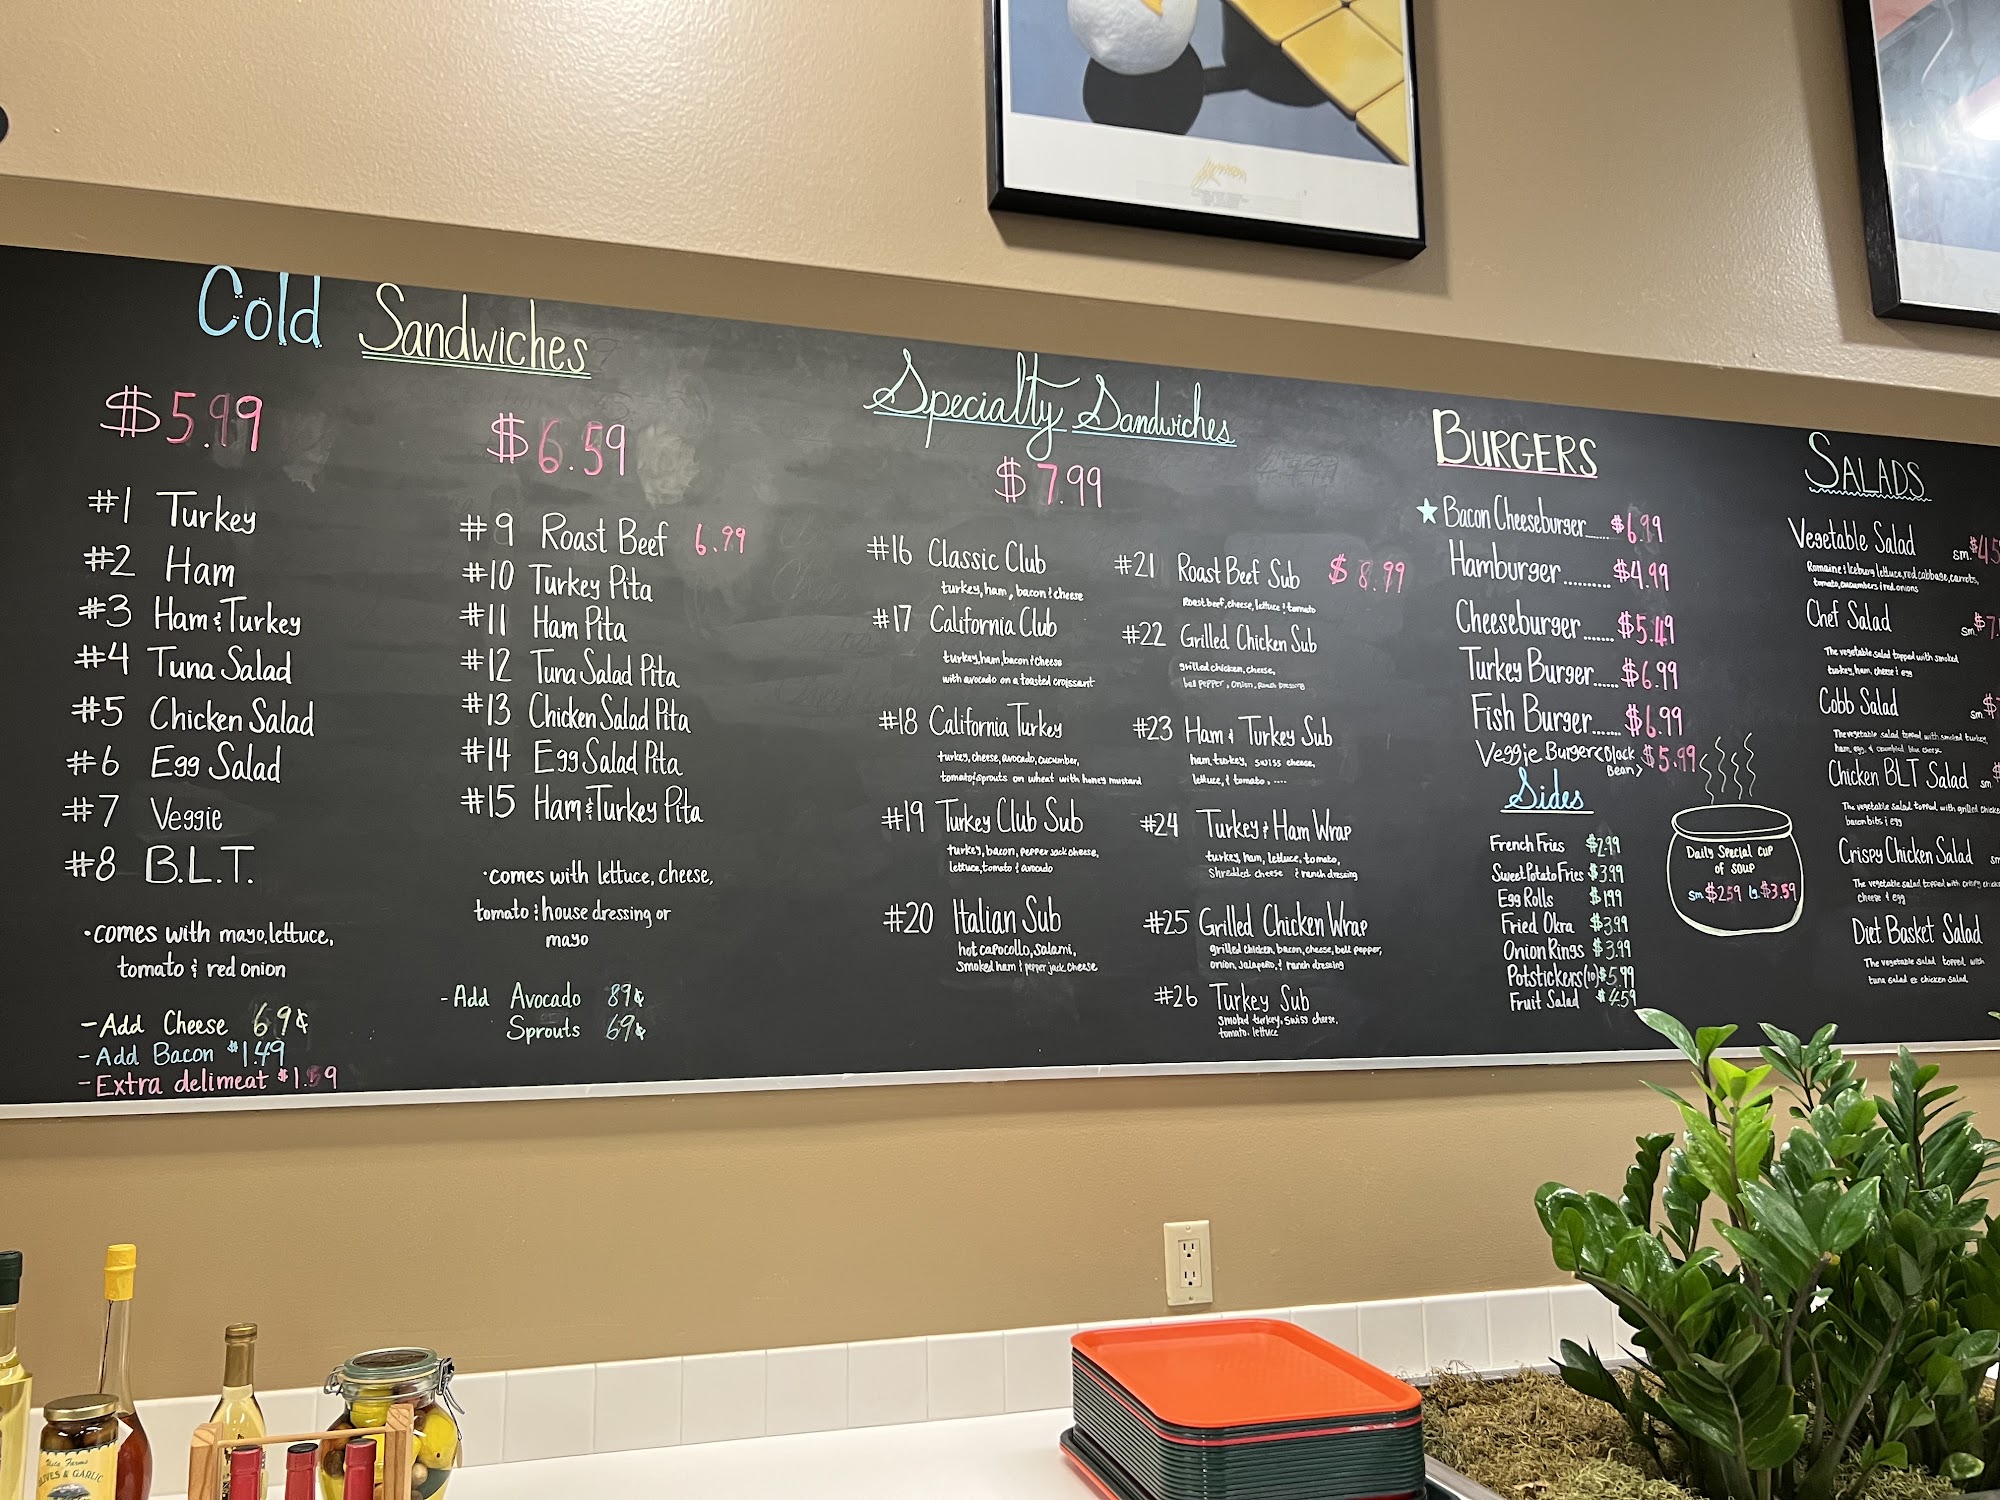 Cold Sandwiches
$5.99
#1 Turkey
#2 Ham
#3 Ham & Turkey
#4 Tuna Salad
#5 Chicken Salad
#6 Egg Salad
#7 Veggie
#8 B.L.T.
•comes with mayo, lettuce,
tomato & red onion
-Add Cheese 69¢
-Add Bacon $1.49
-Extra delimeat
$6.59
#9 Roast Beef 6.99
#10 Turkey Pita
#11 Ham Pita
#12 Tuna Salad Pita
#13 Chicken Salad Pita
#14 Egg Salad Pita
#15 Ham & Turkey Pita
•comes with lettuce, cheese,
tomato & house dressing or
mayo
-Add Avocado 89¢
Sprouts 69¢
Specialty Sandwiches
$7.99
#16 Classic Club
turkey, ham, bacon & cheese
#17 California Club
turkey, ham, bacon & cheese
with avocado on a toasted croissant
#18 California Turkey
turkey, cheese, avocado, cucumber,
tomato, sprouts on wheat with honey mustard
#19 Turkey Club Sub
turkey, bacon, pepper jack cheese,
lettuce, tomato & avocado
#20 Italian Sub
hot capocollo, salami,
smoked ham & pepper jack cheese
#21 Roast Beef Sub $8.99
Roast beef, cheese, lettuce & tomato
#22 Grilled Chicken Sub
grilled chicken, cheese,
bell pepper, onion, ranch dressing
#23 Ham & Turkey Sub
ham, turkey, swiss cheese,
lettuce, & tomato, ....
#24 Turkey & Ham Wrap
turkey, ham, lettuce, tomato,
shredded cheese & ranch dressing
#25 Grilled Chicken Wrap
grilled chicken, bacon, cheese, bell pepper,
onion, jalapeño, & ranch dressing
#26 Turkey Sub
smoked turkey, swiss cheese,
tomato, lettuce
BURGERS
Bacon Cheeseburger....... $6.99
Hamburger.......... $4.99
Cheeseburger....... $5.49
Turkey Burger...... $6.99
Fish Burger....... $6.99
Veggie Burger <Black Bean> $5.99
Sides
French Fries $2.99
Sweet Potato Fries $3.99
Egg Rolls $1.99
Fried Okra $3.99
Onion Rings $3.99
Potstickers (10) $5.99
Fruit Salad $4.59
Daily Special Cup
of Soup
sm. $2.59 lg. $3.59
SALADS
Vegetable Salad sm. $4.5
Romaine & Iceburg lettuce, red cabbage, carrots,
tomato, cucumbers & red onions
Chef Salad sm. $7.
The vegetable salad topped with smoked
turkey, ham, cheese & egg
Cobb Salad sm. $
The vegetable salad topped with smoked turkey,
ham, egg, & crumbled blue cheese
Chicken BLT Salad sm
The vegetable salad topped with grilled chicken
bacon bits & egg
Crispy Chicken Salad sm
The vegetable salad topped with crispy chicken
cheese & egg
Diet Basket Salad
The vegetable salad topped with
tuna salad or chicken salad
OLIVES & GARLIC